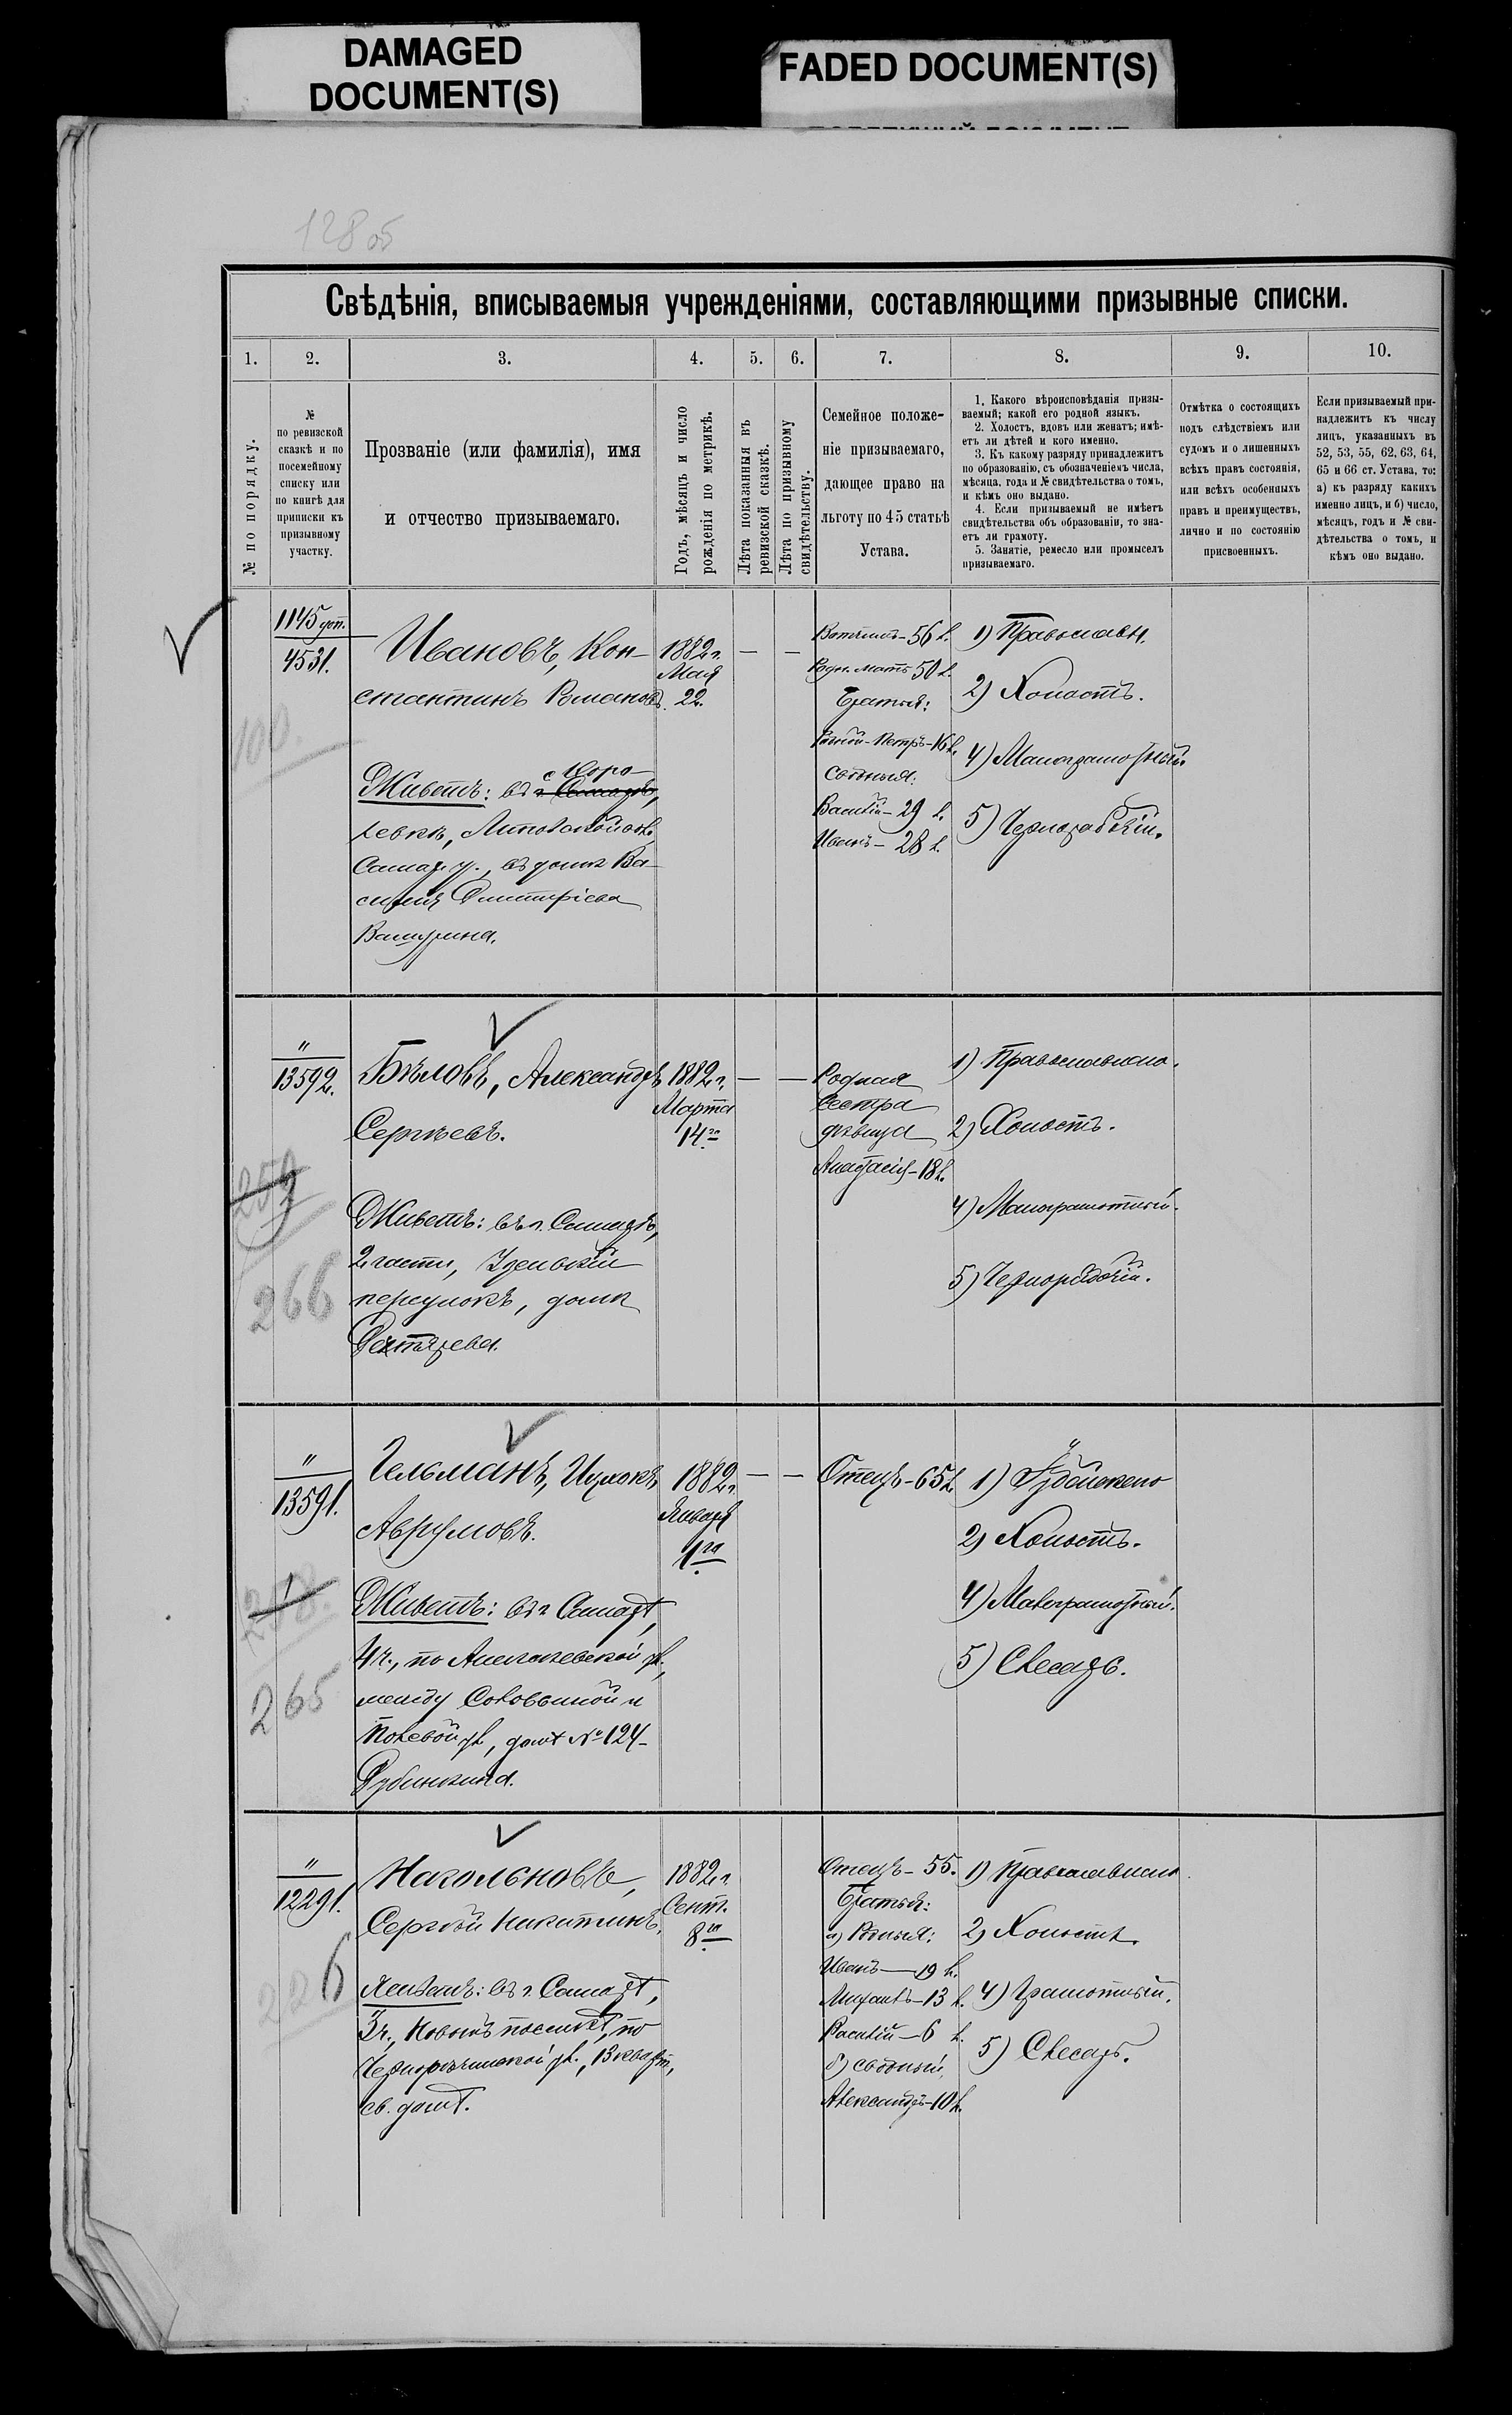 DAMAGED
DOCUMENT(S)
FADED DOCUMENT(S)
128 об
Свѣдѣнія, вписываемыя учрежденіями, составляющими призывные списки.
1.
2.
3.
4.
5.
6.
7.
8.
9.
10.
№ по порядку.
№
по ревизской
сказкѣ и по
посемейному
списку или
по книгѣ для
приписки къ
призывному
участку.
Прозваніе (или фамилія), имя
и отчество призываемаго.
Годъ, мѣсяцъ и число
рожденія по метрикѣ.
Лѣта показанныя въ
ревизской сказкѣ.
Лѣта по призывному
свидѣтельству.
Семейное положе-
ніе призываемаго,
дающее право на
льготу по 45 статьѣ
Устава.
1. Какого вѣроисповѣданія призы-
ваемый; какой его родной языкъ.
2. Холостъ, вдовъ или женатъ; имѣ-
етъ ли дѣтей и кого именно.
3. Къ какому разряду принадлежитъ
по образованію, съ обозначеніемъ числа,
мѣсяца, года и № свидѣтельства о томъ,
и кѣмъ оно выдано.
4. Если призываемый не имѣетъ
свидѣтельства объ образованіи, то зна-
етъ ли грамоту.
5. Занятіе, ремесло или промыселъ
призываемаго.
Отмѣтка о состоящихъ
подъ слѣдствіемъ или
судомъ и о лишенныхъ
всѣхъ правъ состоянія,
или всѣхъ особенныхъ
правъ и преимуществъ,
лично и по состоянію
присвоенныхъ.
Если призываемый при-
надлежитъ къ числу
лицъ, указанныхъ въ
52, 53, 55, 62, 63, 64,
65 и 66 ст. Устава, то:
а) къ разряду какихъ
именно лицъ, и б) число,
мѣсяцъ, годъ и № сви-
дѣтельства о томъ, и
кѣмъ оно выдано.
1145 доп.
4531.
100.
Ивановъ, Кон-
стантинъ Романовъ.
Живетъ: въ г. Самарѣ,
с. Доро-
Самар. у., въ домѣ Ва-
силія Димитріева
1882 г.
Мая
22.
Вотчимъ - 56 л.
Родн. мать 50 л.
Братья:
Родной - Петръ - 16 л.
Сводные:
Василій - 29 л.
Иванъ - 28 л.
1) Православн.
2) Холостъ.
4) Малограмотный.
5) Чернорабочій.
"
13592.
259
266
Бѣловъ, Александръ
Сергѣевъ.
Живетъ: въ г. Самарѣ,
2 части, Удельный
переулокъ, домъ
Дехтярева.
1882 г.
Марта
14го
Родная
сестра
дѣвица
Анастасія - 18 л.
1) Православнаго.
2) Холостъ.
4) Малограмотный.
5) Чернорабочій.
"
13591.
258.
265
Гельманъ, Ицхокъ
Аврумовъ.
Живетъ: въ г. Самарѣ,
4 ч., по Алексѣевской ул.,
между Соловьиной и
Полевой ул., домъ № 124 -
Рубинкина.
1882 г.
Января
1го
Отецъ - 65 л.
1) Іудейскаго
2) Холостъ.
4) Малограмотный.
5) Слесарь.
"
12291.
226
Накольновъ,
Сергѣй Никитинъ.
Живетъ: въ г. Самарѣ,
3 ч., Новомъ поселкѣ, по
Чернорѣченской ул., 13 кварт.,
св. домѣ.
1882 г.
Сент.
8го
Отецъ - 55.
Братья:
а) Родные:
Иванъ - 19 л.
Михаилъ - 13 л.
Василій - 6 л.
б) сводный,
Александръ - 10 л.
1) Православнаго
2) Холостъ.
4) Грамотный.
5) Слесарь.